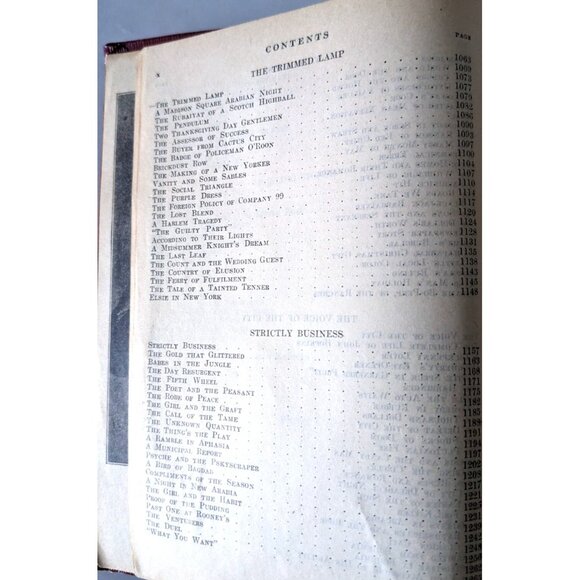 x
CONTENTS
PAGE
THE TRIMMED LAMP
THE TRIMMED LAMP 1063
A MADISON SQUARE ARABIAN NIGHT 1069
THE RUBAIYAT OF A SCOTCH HIGHBALL 1073
THE PENDULUM 1077
TWO THANKSGIVING DAY GENTLEMEN 1079
THE ASSESSOR OF SUCCESS 1082
THE BUYER FROM CACTUS CITY 1086
THE BADGE OF POLICEMAN O'ROON 1090
BRICKDUST ROW 1093
THE MAKING OF A NEW YORKER 1097
VANITY AND SOME SABLES 1100
THE SOCIAL TRIANGLE 1104
THE PURPLE DRESS 1107
THE FOREIGN POLICY OF COMPANY 99 1110
THE LOST BLEND 1114
A HARLEM TRAGEDY 1117
"THE GUILTY PARTY" 1120
ACCORDING TO THEIR LIGHTS 1124
A MIDSUMMER KNIGHT'S DREAM 1128
THE LAST LEAF 1131
THE COUNT AND THE WEDDING GUEST 1135
THE COUNTRY OF ELUSION 1138
THE FERRY OF FULFILMENT 1143
THE TALE OF A TAINTED TENNER 1145
ELSIE IN NEW YORK 1148
STRICTLY BUSINESS
STRICTLY BUSINESS 1157
THE GOLD THAT GLITTERED 1163
BABES IN THE JUNGLE
THE DAY RESURGENT
THE FIFTH WHEEL
THE POET AND THE PEASANT
THE ROBE OF PEACE
THE GIRL AND THE GRAFT
THE CALL OF THE TAME
THE UNKNOWN QUANTITY
THE THING'S THE PLAY
A RAMBLE IN APHASIA
A MUNICIPAL REPORT
PSYCHE AND THE PSKYSCRAPER
A BIRD OF BAGDAD
COMPLIMENTS OF THE SEASON
A NIGHT IN NEW ARABIA
THE GIRL AND THE HABIT
PROOF OF THE PUDDING
PAST ONE AT ROONEY'S
THE VENTURERS
THE DUEL
"WHAT YOU WANT"